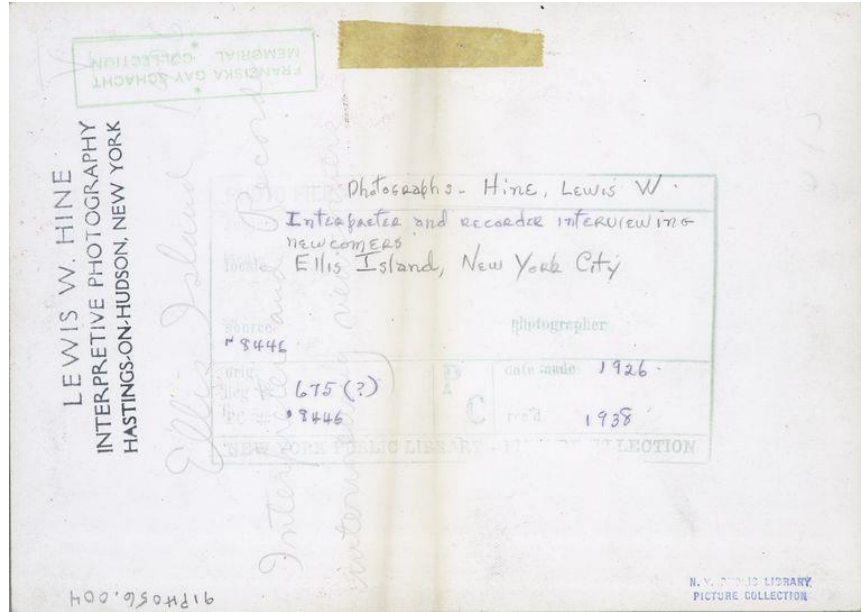 FRANZISKA GAY SCHACHT
MEMORIAL COLLECTION
LEWIS W. HINE
INTERPRETIVE PHOTOGRAPHY
HASTINGS-ON-HUDSON, NEW YORK
Ellis Island
Interpreter and Recorder
interviewing newcomers
Photographs - Hine, Lewis W.
Interpreter and recorder interviewing
newcomers
Ellis Island, New York City
source
photographer
#8446
orig.
neg #
675 (?)
date made 1926.
P
C
#8446
rec'd. 1938
NEW YORK PUBLIC LIBRARY - PICTURE COLLECTION
91PH056.004
N. Y. PUBLIC LIBRARY
PICTURE COLLECTION